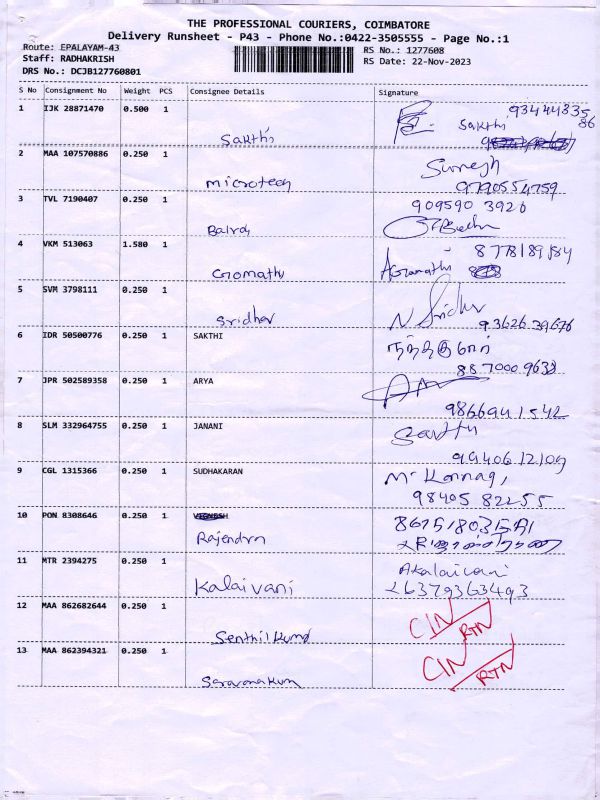 THE PROFESSIONAL COURIERS, COIMBATORE
Delivery Runsheet - P43 - Phone No.:0422-3505555 - Page No.:1
Route: EPALAYAM-43
RS No.: 1277608
Staff: RADHAKRISH
RS Date: 22-Nov-2023
DRS No.: DCJB127760801
S No Consignment No Weight PCS Consignee Details Signature
1 IJK 28871470 0.500 1
Sakthi Sakthi
2 MAA 107570886 0.250 1
microtech Suresh
9790554759
3 TVL 7190407 0.250 1 909590 3926
4 VKM 513063 1.580 1
Gomathi
5 SVM 3798111 0.250 1
Sridhar N Sridhar
93626 39676
6 IDR 50500776 0.250 1 SAKTHI
887000 9633
7 JPR 502589358 0.250 1 ARYA
9866941542
8 SLM 332964755 0.250 1 JANANI
99406 12109
9 CGL 1315366 0.250 1 SUDHAKARAN
98405 82255
10 PON 8308646 0.250 1
Rajendra
11 MTR 2394275 0.250 1
Kalaivani
12 MAA 862682644 0.250 1 CIN
Senthilkumar RTN
13 MAA 862394321 0.250 1 CIN
RTN